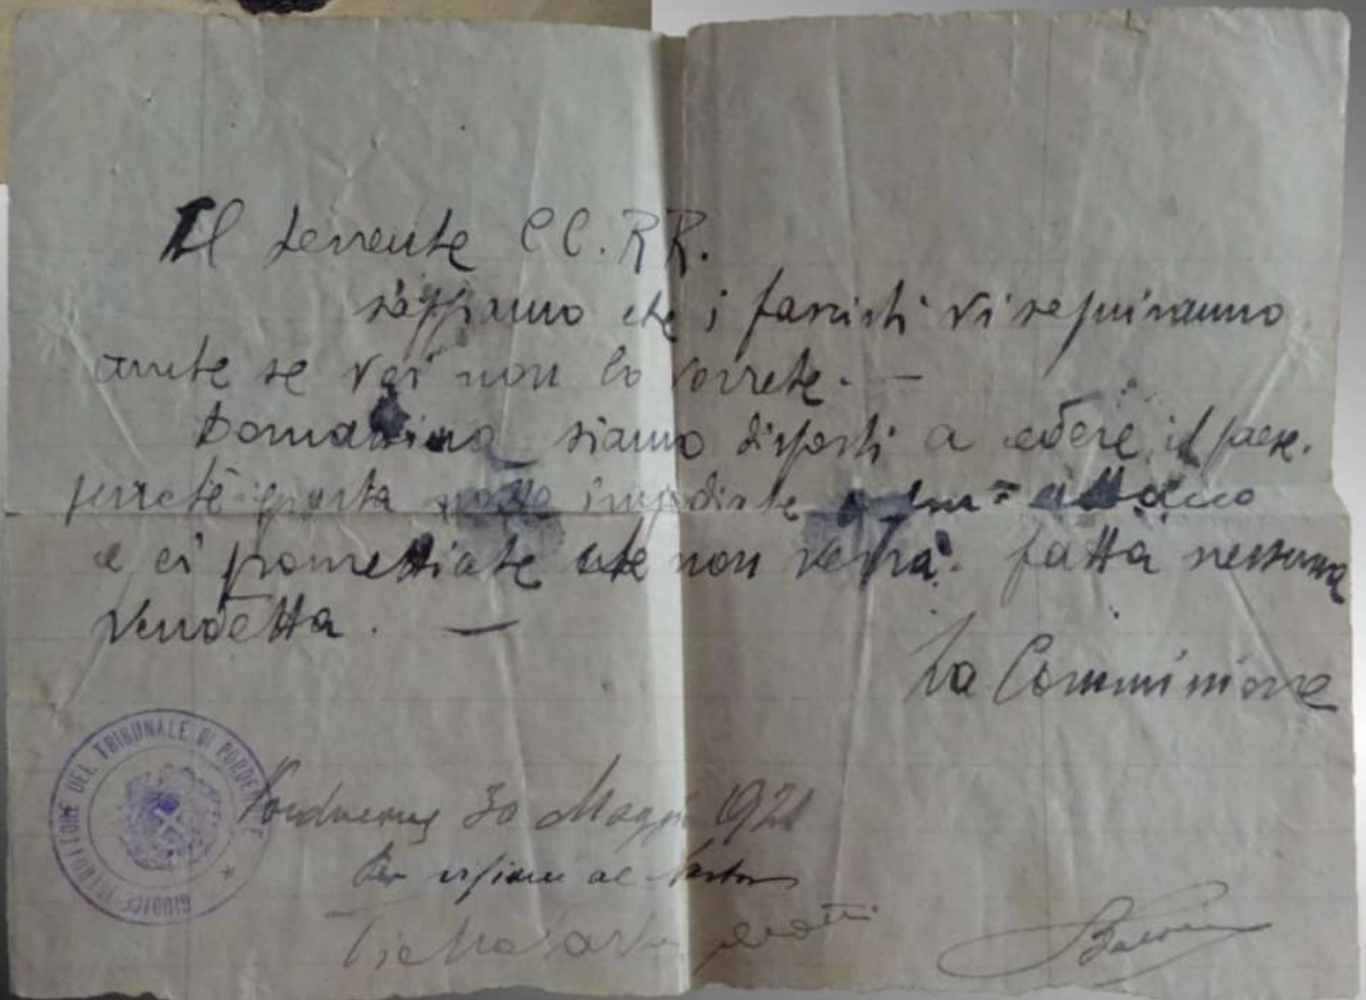 Il tenente CC.RR.
sappiamo che i fascisti vi seguiranno
anche se voi non lo vorrete. —
Domattina siamo disposti a cedere il paese.
purchè questa notte impediate attacco
e ci promettiate che non verrà fatta nessuna
vendetta. —
La Commissione
GIUDICE ISTRUTTORE DEL TRIBUNALE DI PORDENONE
Pordenone 30 Maggio 1921